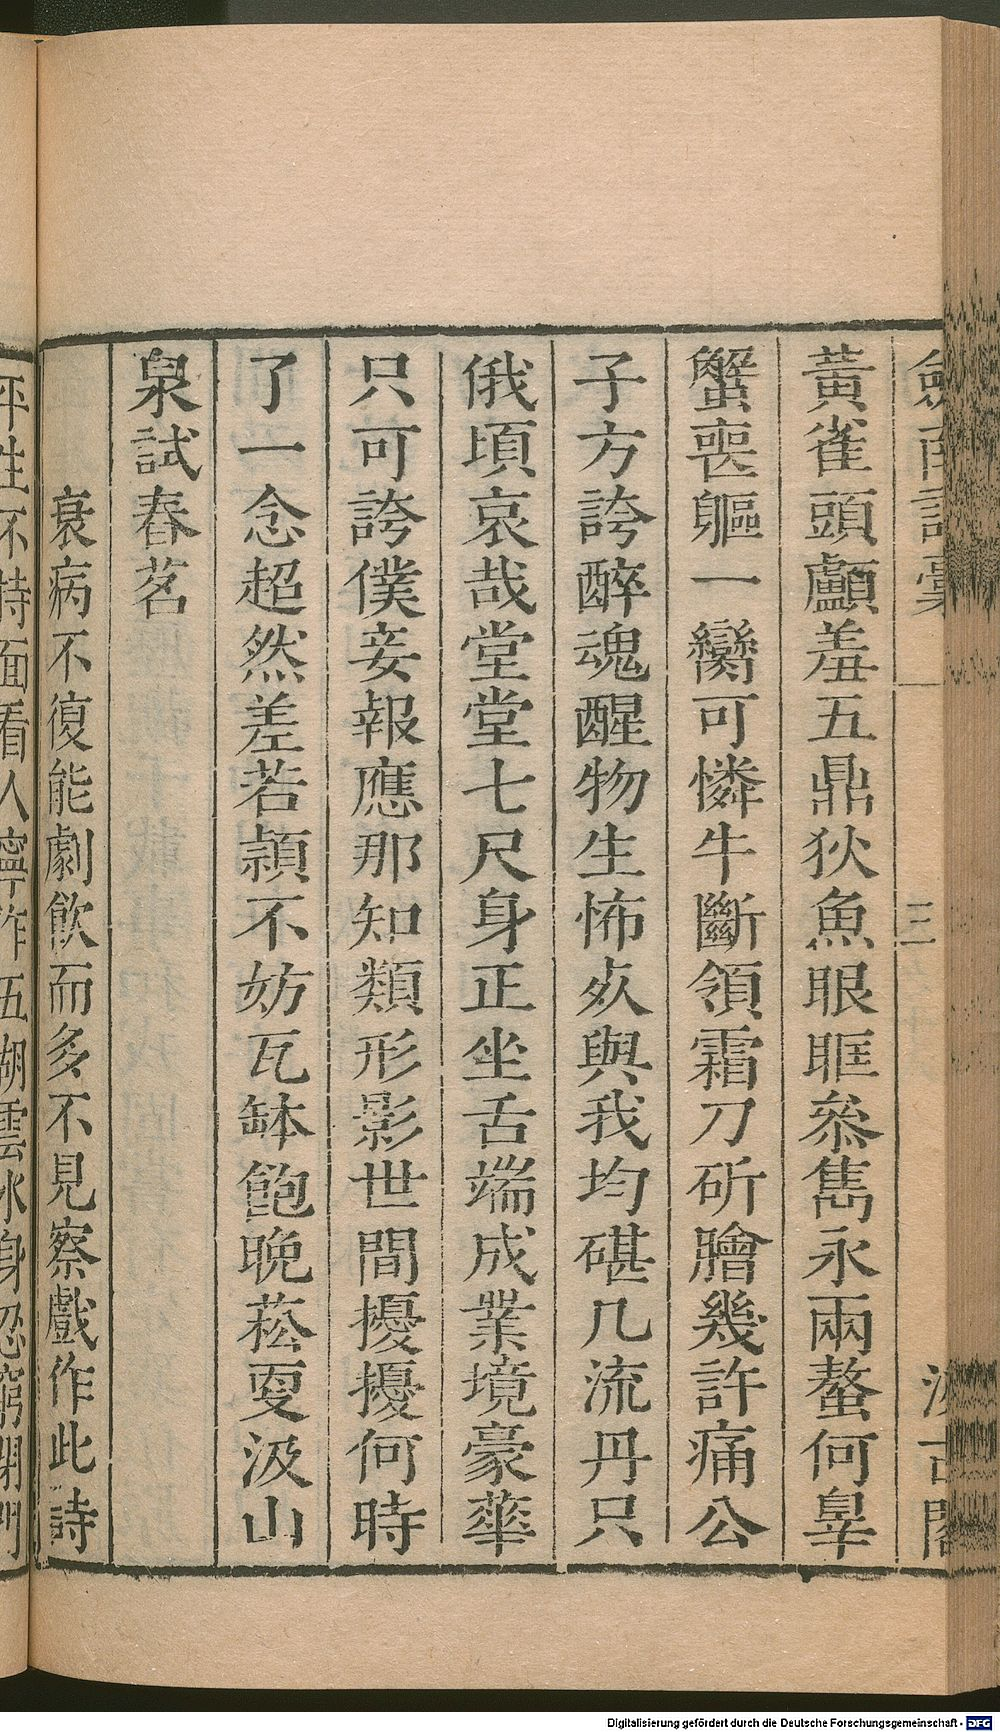 劒南詩稾 三 汲古閣
黃雀頭顱羞五鼎狄魚眼眶叅雋永兩螯何辠
蟹喪軀一臠可憐牛斷領霜刀斫膾幾許痛公
子方誇醉魂醒物生怖死與我均碪几流丹只
俄頃哀哉堂堂七尺身正坐舌端成業境豪華
只可誇僕妾報應那知類形影世間擾擾何時
了一念超然差若頴不妨瓦缽飽晚菘更汲山
泉試春茗
衰病不復能劇飲而多不見察戲作此詩
平生不特面看人寧作五湖雲水身忍窮閉門